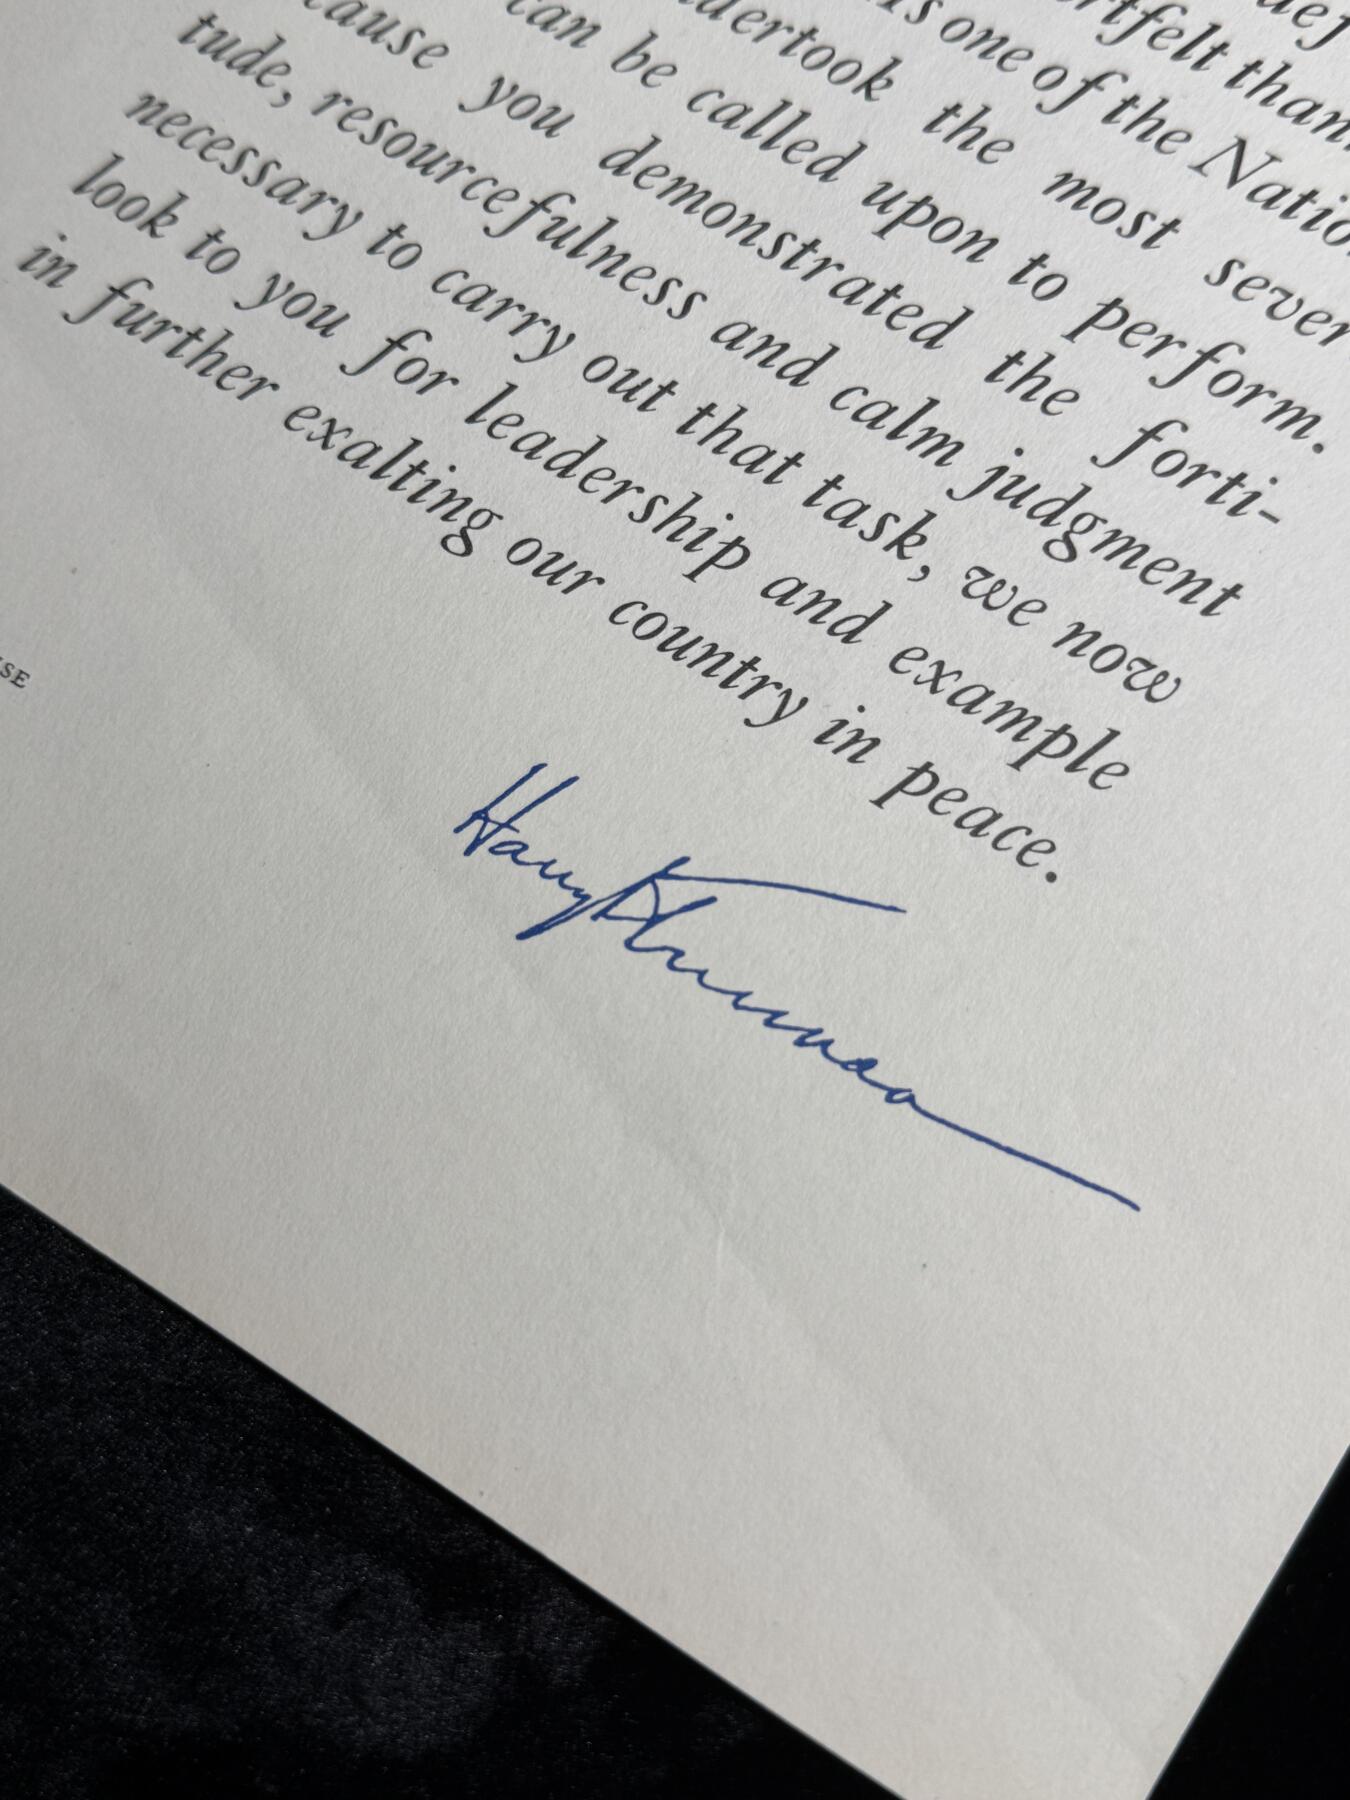 heartfelt
is one of the
undertook the most
can be called upon to perform.
cause you demonstrated the forti-
tude, resourcefulness and calm judgment
necessary to carry out that task, we now
look to you for leadership and example
in further exalting our country in peace.
Harry S Truman